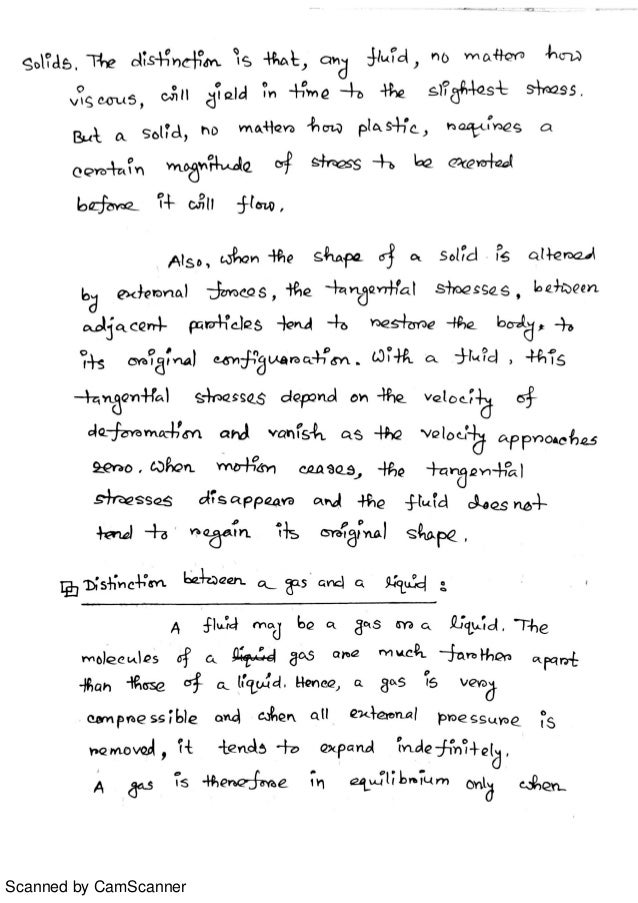 solids. The distinction is that, any fluid, no matter how
viscous, will yield in time to the slightest stress.
But a solid, no matter how plastic, requires a
certain magnitude of stress to be exerted
before it will flow.
Also, when the shape of a solid is altered
by external forces, the tangential stresses, between
adjacent particles tend to restore the body, to
its original configuaration. With a fluid, this
tangential stresses depend on the velocity of
deformation and vanish as the velocity approaches
zero. When motion ceases, the tangential
stresses disappear and the fluid does not
tend to regain its original shape.
Distinction between a gas and a liquid :
A fluid may be a gas or a liquid. The
molecules of a liquid gas are much farther apart
than those of a liquid. Hence, a gas is very
compressible and when all external pressure is
removed, it tends to expand indefinitely.
A gas is therefore in equilibrium only when
Scanned by CamScanner